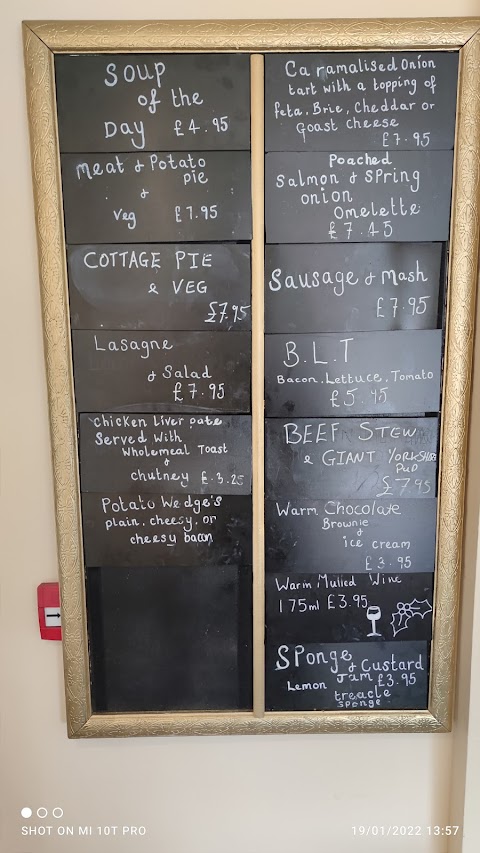 Soup
of the
Day £4.95
Meat & Potato
pie
&
Veg £7.95
COTTAGE PIE
& VEG
£7.95
Lasagne
& Salad
£7.95
Chicken Liver pate
Served With
Wholemeal Toast
&
chutney £.3.25
Potato Wedge's
plain, cheesy, or
cheesy bacon
Caramalised Onion
tart with a topping of
feta, Brie, Cheddar or
Goast cheese
£7.95
Poached
Salmon & Spring
onion
Omelette
£7.45
Sausage & Mash
£7.95
B.L.T
Bacon, Lettuce, Tomato
£5.45
BEEF STEW
& GIANT YORKSHIRE
PUD
£7.95
Warm Chocolate
Brownie
&
ice cream
£3.95
Warm Mulled Wine
175ml £3.95
Sponge & Custard
Lemon Jam £3.95
treacle
sponge
SHOT ON MI 10T PRO
19/01/2022 13:57